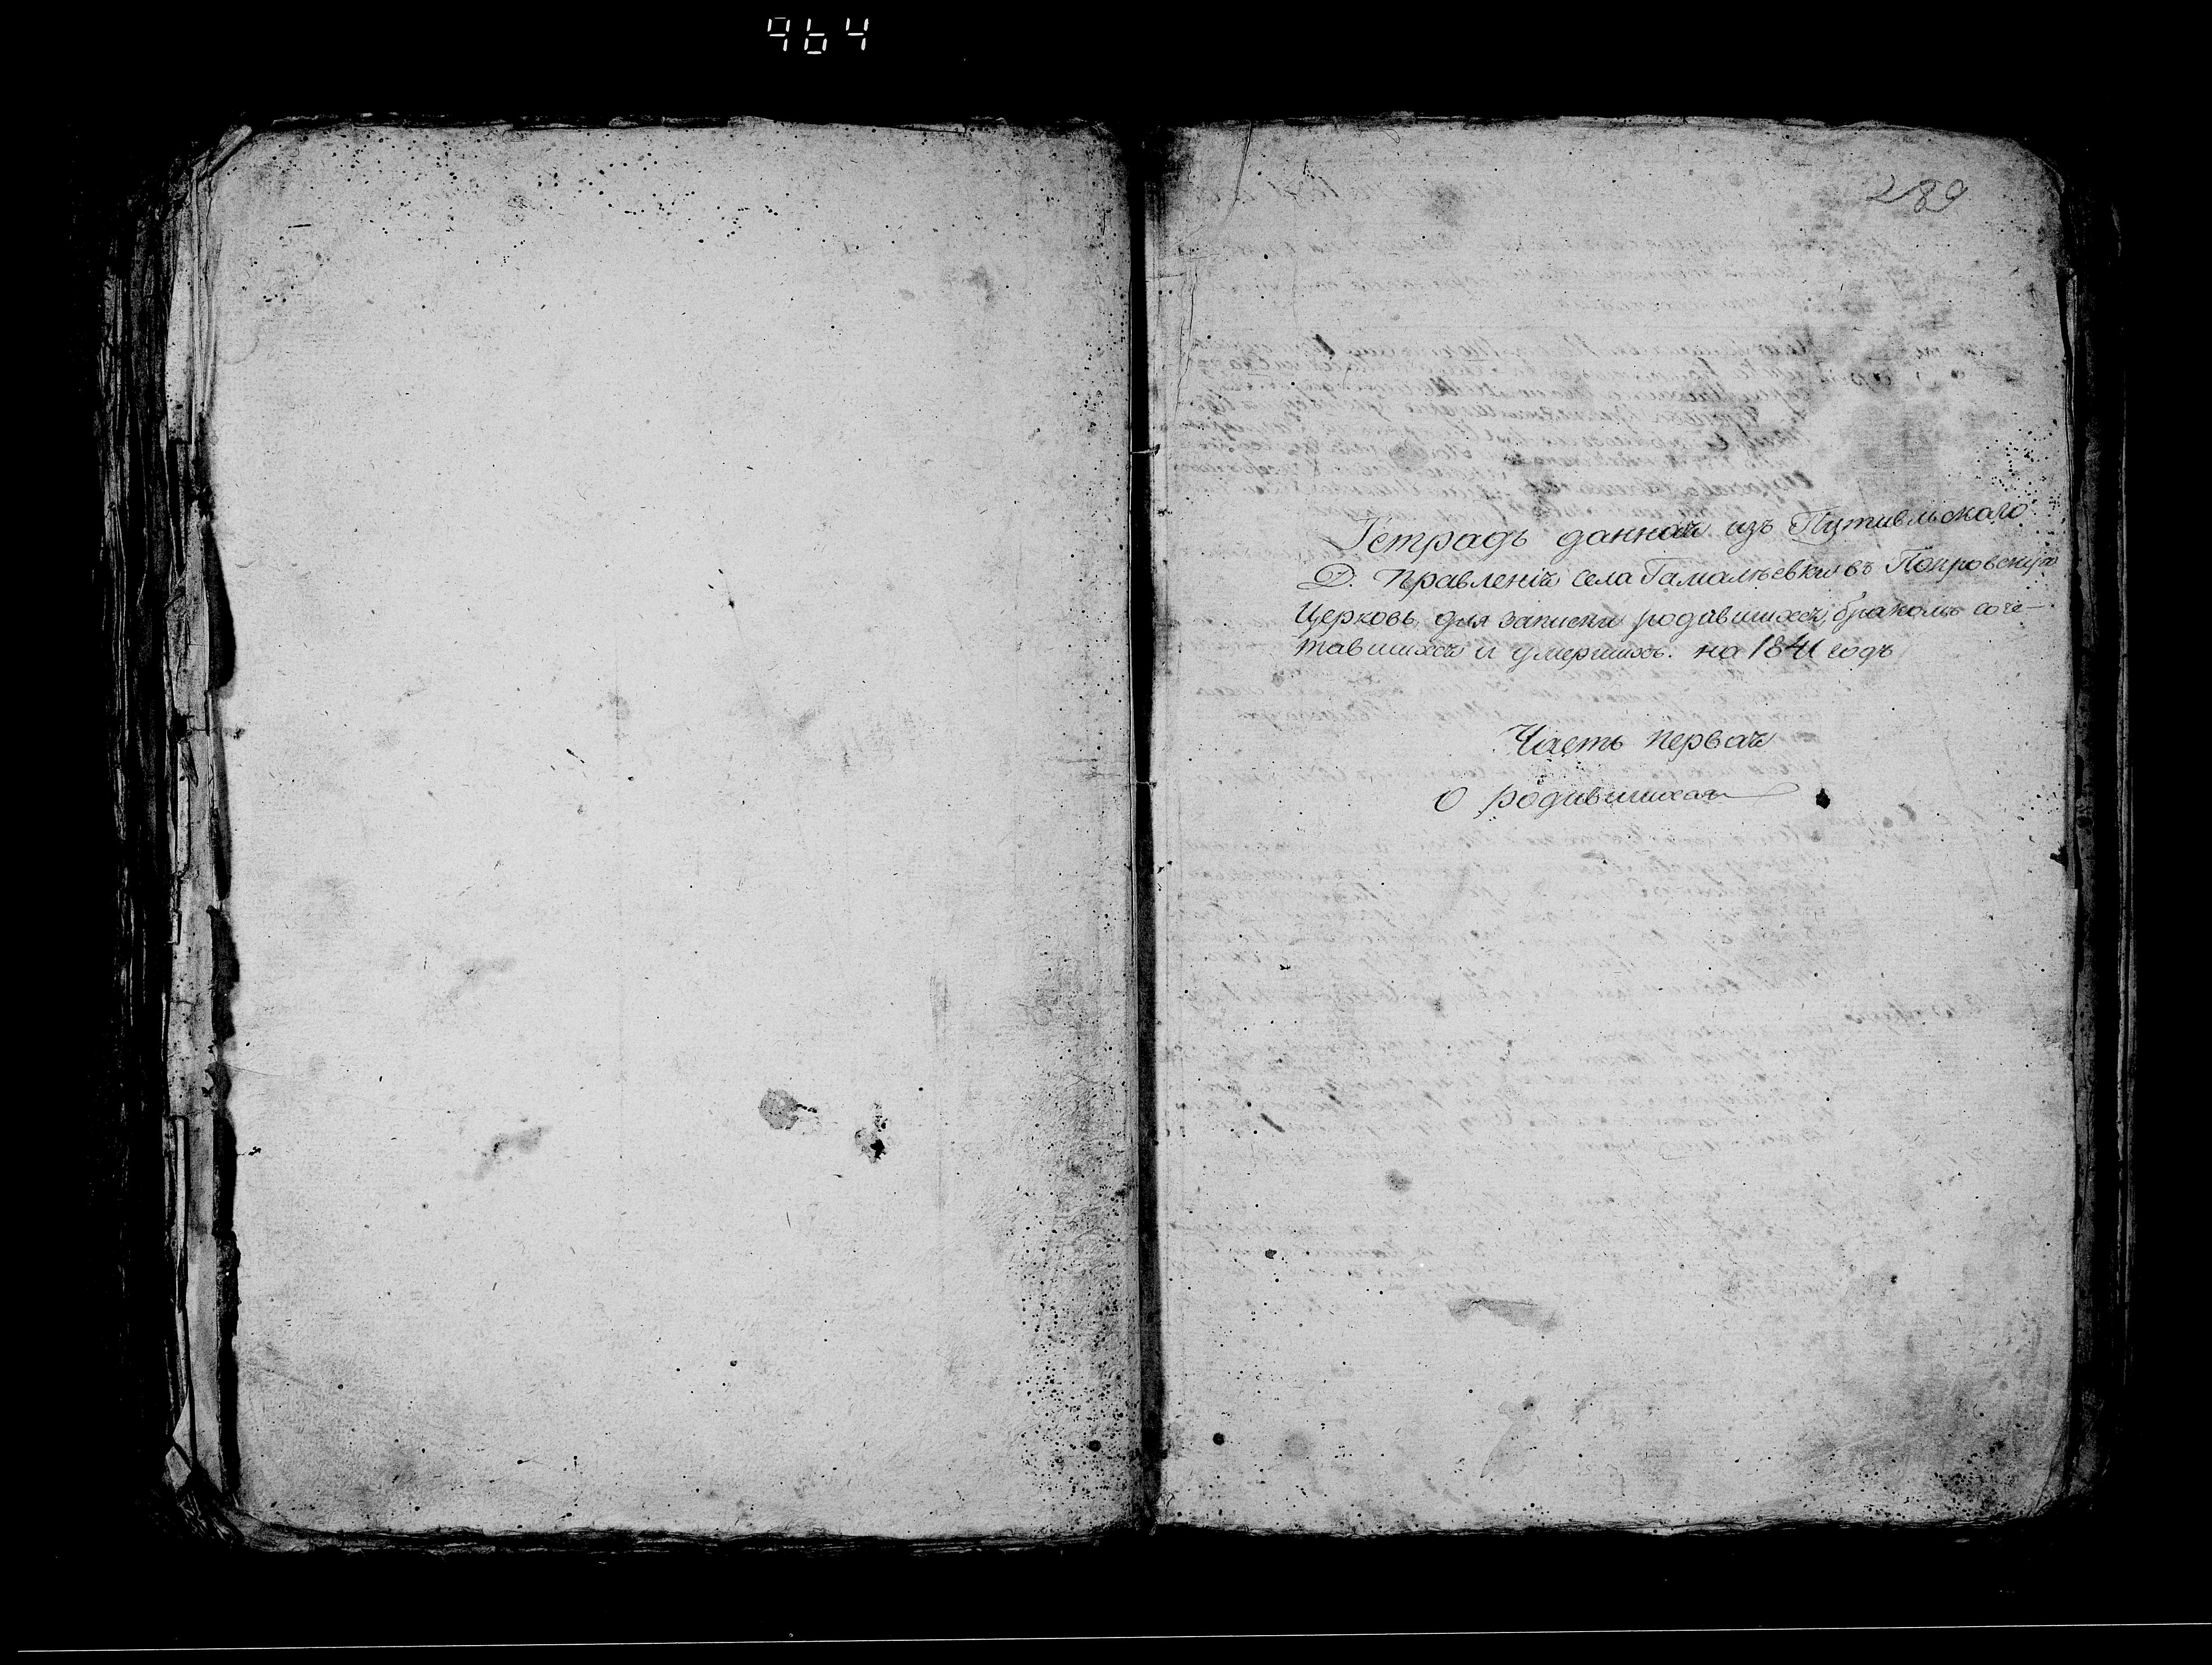 964
289
Тетрадь данная изъ Путивльскаго
Д. Правленія села Гамалѣевки въ Покровскую
Церковь, для записки родившихся, бракомъ соче-
тавшихся и умершихъ. на 1841 годъ
Часть первая
О родившихся